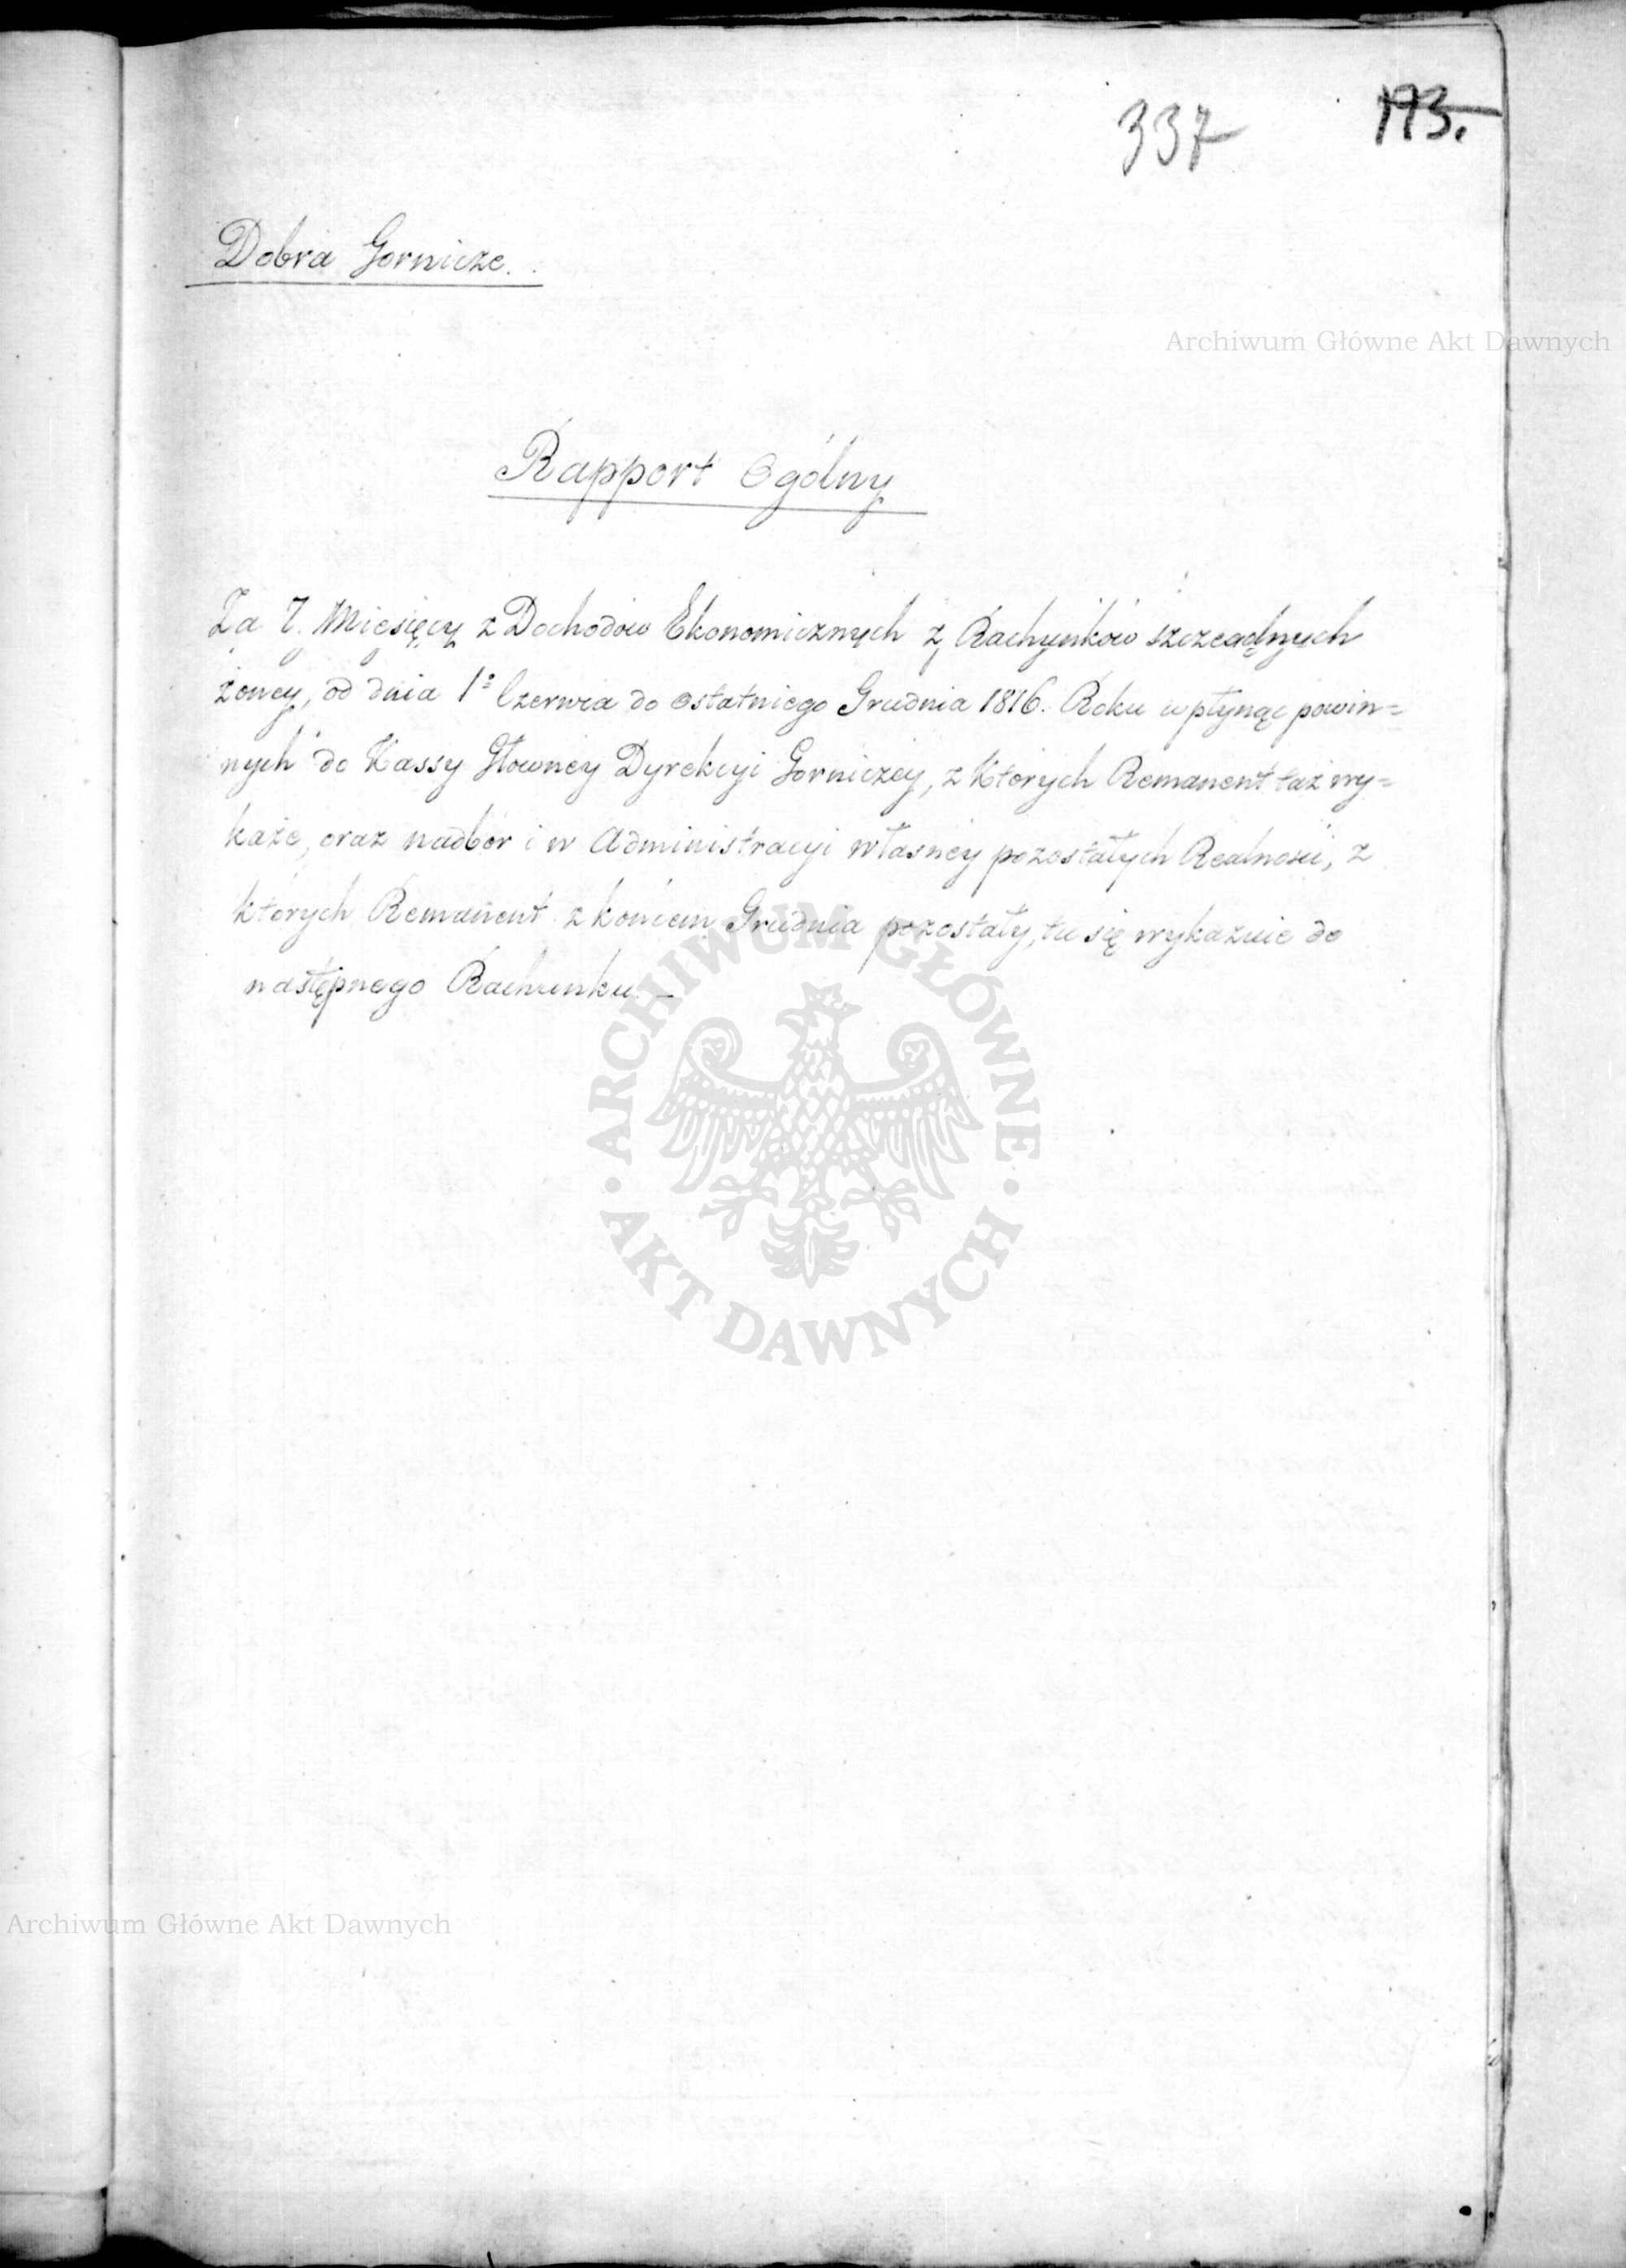 337
193.
Dobra Gornicze.
Archiwum Główne Akt Dawnych
Rapport Ogólny
Za 7. Miesięcy z Dochodów Ekonomicznych z Rachunków szczególnych
żoney, od dnia 1º Czerwca do ostatniego Grudnia 1816. Roku wpłynąć powin=
nych do Kassy Głowney Dyrekcyi Gorniczey, z których Remanent taż wy=
każe, oraz nadbór i w Administracyi własney pozostałych Realności, z
których Remanent z końcem Grudnia pozostały, tu się wykazuie do
następnego Rachunku. –
ARCHIWUM GŁÓWNE
AKT DAWNYCH
Archiwum Główne Akt Dawnych